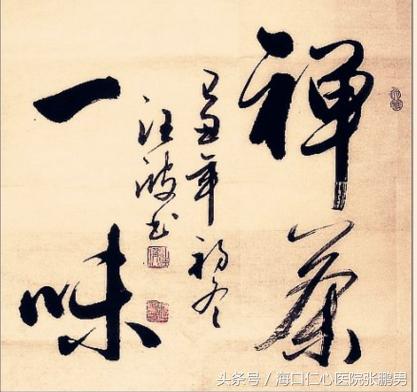 禅茶
一味
己丑年初冬
汪波书
头条号 / 海口仁心医院张鹏男